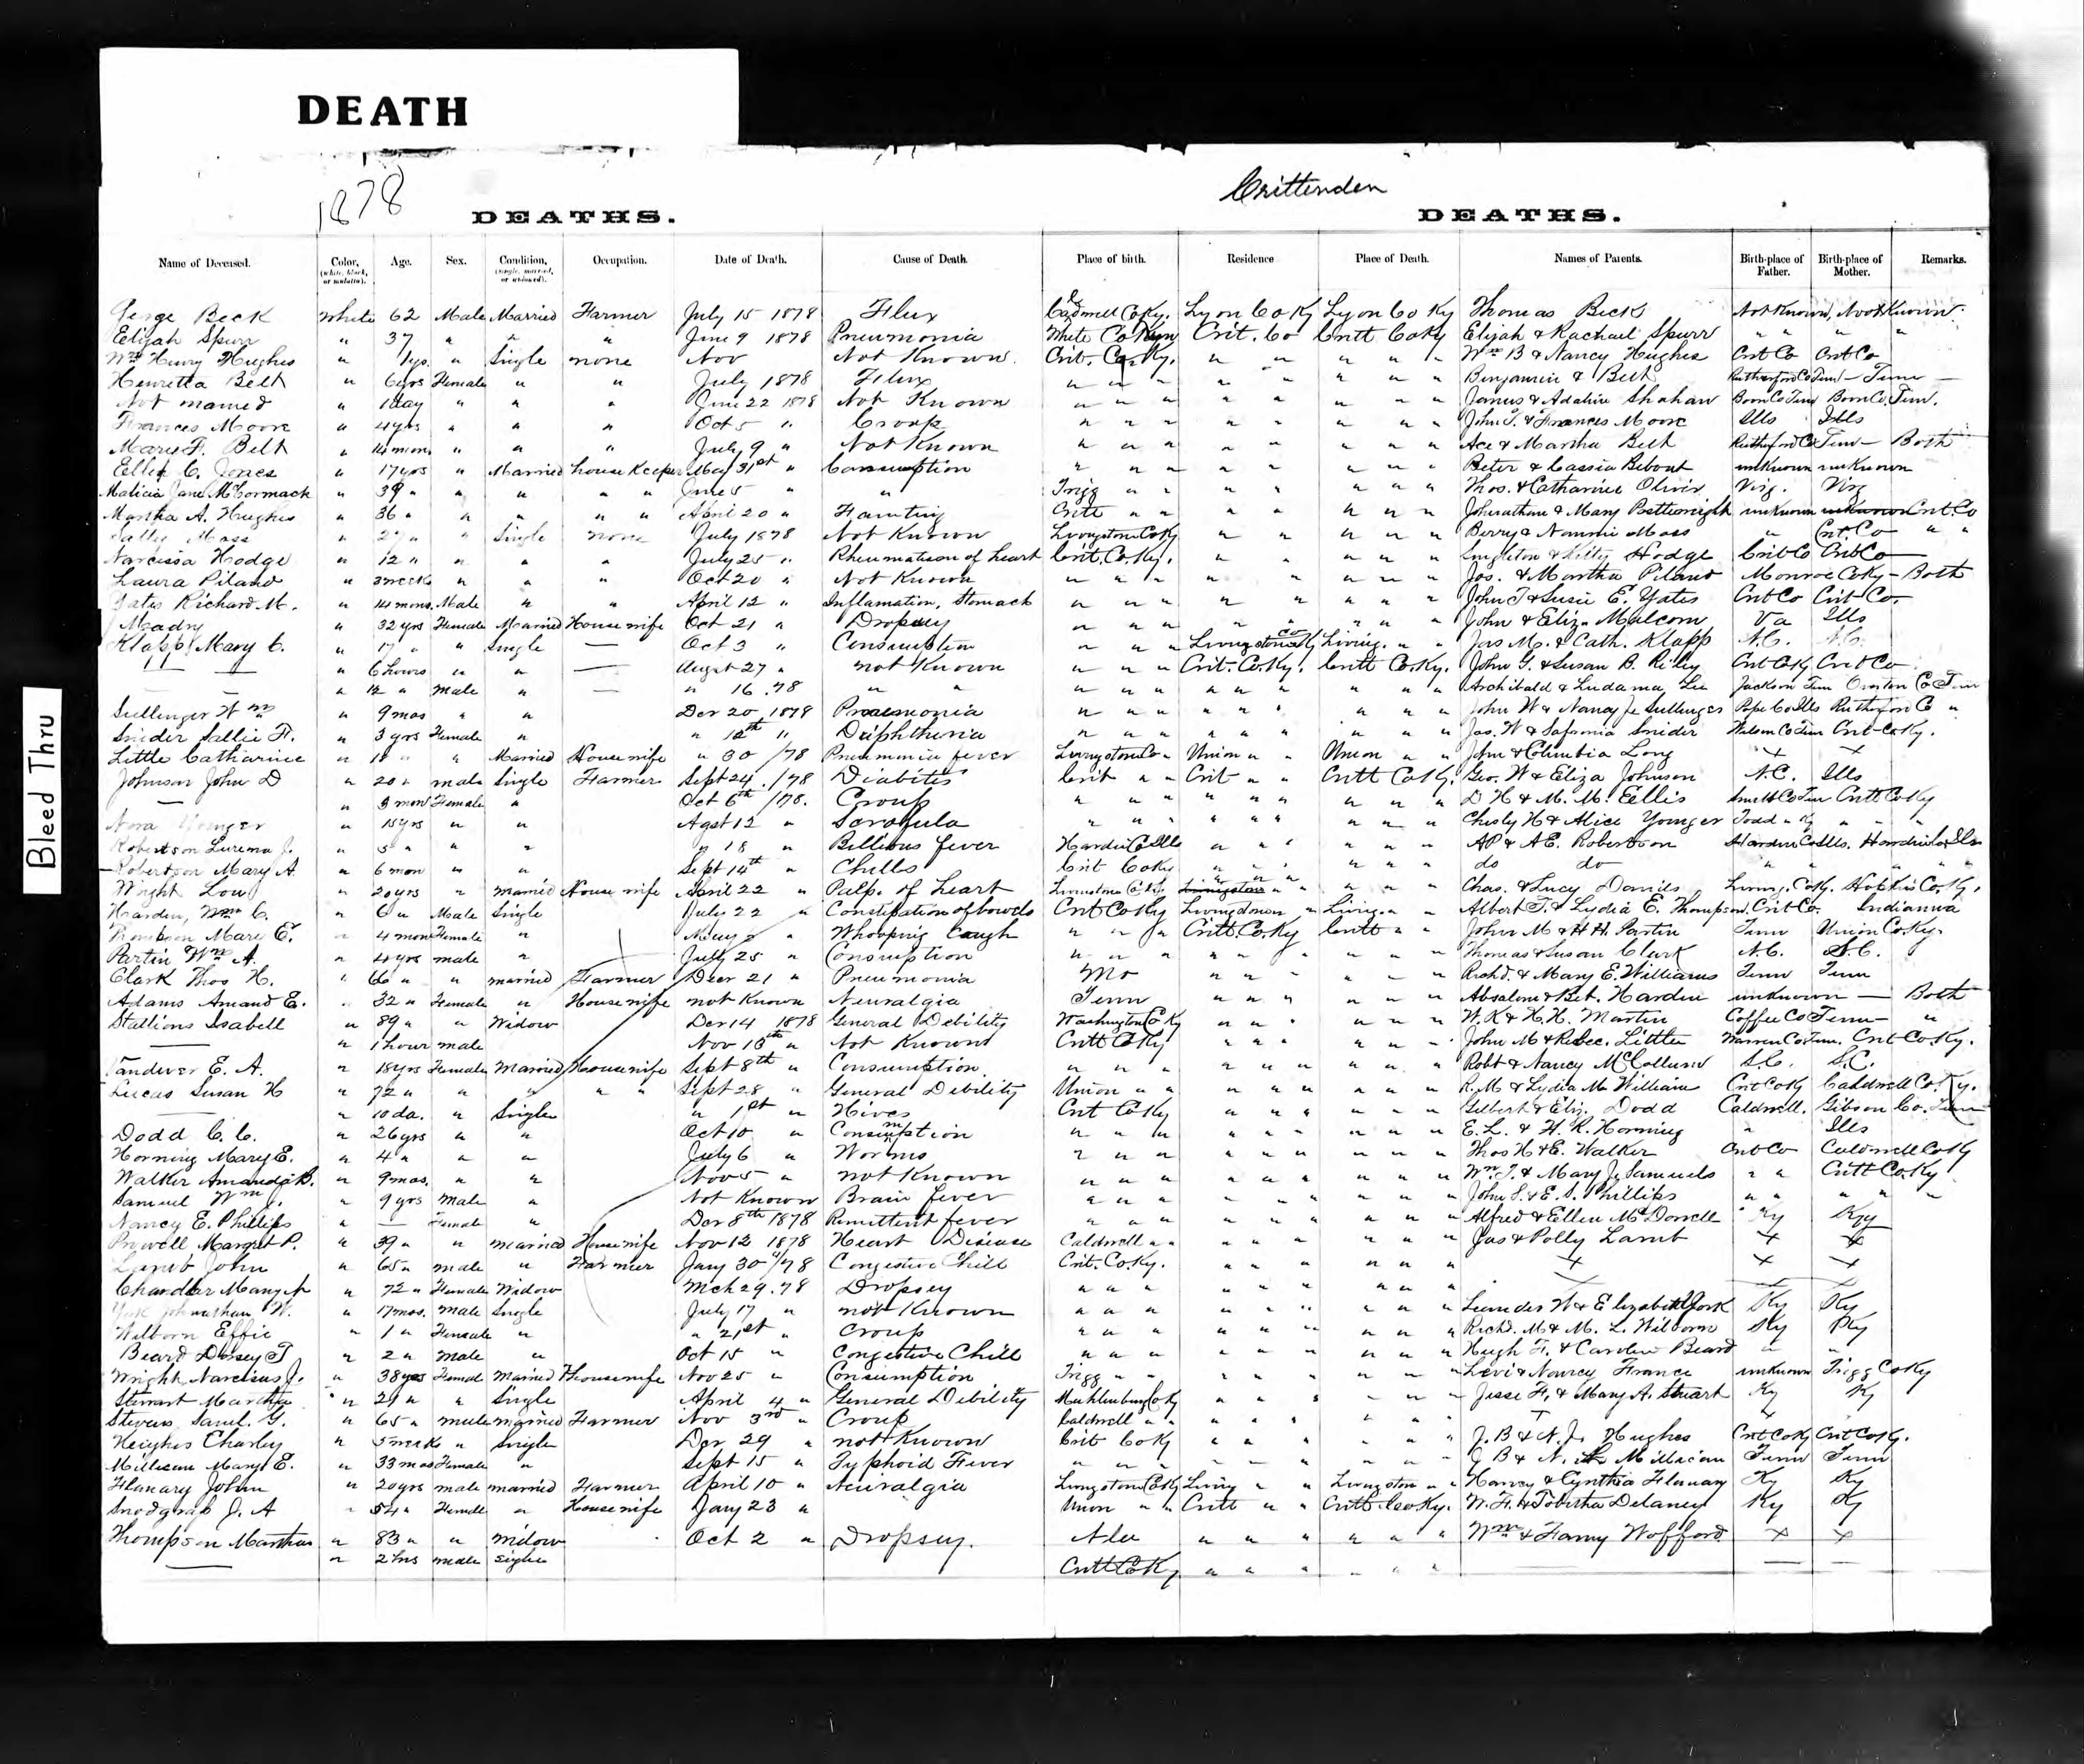 DEATH
Bleed Thru
1878
Crittenden
DEATHS. DEATHS.
Name of Deceased. Color, (white, black, or mulatto). Age. Sex. Condition, (single, married, or widowed). Occupation. Date of Death. Cause of Death. Place of birth. Residence Place of Death. Names of Parents. Birth-place of Father. Birth-place of Mother. Remarks.
Beck White 62 Male Married Farmer July 15 1878 Flux Lyon Co Ky Lyon Co Ky Thomas Beck Not Known, Not Known
Elijah Spurr " 37 " " " June 9 1878 Pneumonia White Co Crit. Co Critt Co Ky Elijah & Rachael Spurr " " "
Wm Henry Hughes " 1yr. " Single none Nov Not Known. Crit. Co. Ky. " " " " " Wm B & Nancy Hughes Crit Co Crit Co
Henrietta Belt " 6yrs Female " " July 1878 Flux " " " " " " " " Benjamin & Belt Rutherford Co Tenn — Tenn —
Not named " 1day " " " June 22 1878 Not Known " " " " " " " " James & Adaline Co Tenn Co. Tenn.
Frances Moore " 4yrs " " " Oct 5 " Croup " " " " " " " " John T. & Frances Moore Ills Ills
Mary F. Belt " 14 mons " " " July 9 " Not Known " " " " " " " " & Martha Belt Rutherford Co Tenn — Both
Ellen C. Jones " 17yrs " Married house Keeper May 31st " Consumption " " " " " " " " Peter & Cassia unknown unknown
Jane McCormack " 39 " " " " " June 5 " " Trigg " " " " " " " Thos. & Catharine Oliver Virg. Virg
Martha A. Hughes " 36 " " " " " April 20 " Fainting Critt " " " " " " " Johnathan & Mary unknown Crit. Co
Moss " 27 " " Single none July 1878 Not Known Livingston Co Ky " " " " " Berry & Moss " Crit. Co " "
Narcissa Hodge " 12 " " " " July 25 " Rheumatism of heart Crit. Co. Ky. " " " " " Singleton & Hodge Crit Co Crit Co
Laura Piland " 3 weeks " " " Oct 20 " Not Known " " " " " " " " Jas. & Martha Piland Monroe Co Ky — Both
Yates Richard M. " 14 mons. Male " " April 12 " Inflamation, Stomach " " " " " " " " John T & Susie E. Yates Crit Co Crit Co.
" 32 yrs Female Married House wife Oct 21 " Dropsey " " " " " " John & Eliz. Malcom Va Ills
Klapp Mary C. " 17 " " Single — Oct 3 " Consumption " " " Livingston Co Ky Living. " " Jas M. & Cath. Klapp N.C. N.C.
— " 6 hours " " — August 27 " not Known " " " Crit. Co. Ky. Critt Co. Ky. John G. & Susan B. Riley Crit Co Ky Crit Co
" 12 " male " — " 16 .78 " " " " " " " " " " " Archibald & Jackson Tenn Overton Co Tenn
Sullenger Wm " 9 mos " " Dec 20 1878 Pneumonia " " " " " " " " " John W & Nancy Sullenger Pope Co Ills Rutherford Co "
Snider Sallie F. " 3 yrs Female " " " Diphtheria " " " " " " " " " Jas. W & Snider Wilson Co Tenn Crit Co Ky.
Little Catharine " 18 " " Married House wife " 30 /78 Pneumonia fever Livingston Co " Union " " Union " " John & Columbia Long × ×
Johnson John D " 20 " male Single Farmer Sept 24. /78 Diabetis Crit " " Crit " " Critt Co Ky. Geo. W & Eliza Johnson N.C. Ills
— " 3 mons Female " Oct 6th /78. Croup " " " " " " " " " D H & M. M. Ellis Smith Co Tenn Critt Co Ky
Nora Younger " 15 yrs " " Agst 12 " Scrofula " " " " " " " " " H & Alice Younger Todd " Ky " " "
Robertson Lurena J. " 5 " " " " 18 " Billious fever Hardin Co Ills " " " " " " AP & A.E. Robertson Hardin Co Ills. Hardin Co Ills
Robertson Mary A. " 6 mon " " Sept 14th " Chills Crit Co Ky " " " " " " do do " "
Wright Lou " 20 yrs " married House wife April 22 " Palp. of heart Livingston Co Ky. " " " " " Chas. & Lucy Daniels Living. Co Ky. Hopkins Co. Ky.
Harden, Wm C. " 6 " Male Single July 22 " Constipation of bowels Crit Co Ky Livingston " Living. " " Albert T. & Lydia E. Thompson. Crit Co. Indianna
Thompson Mary E. " 4 mons Female " May " Whooping Cough " " " Critt. Co. Ky Critt " " John M & H H. Partin Tenn Union Co. Ky.
Partin Wm A. " 4 yrs male " July 25 " Consumption " " " " " " " " " Thomas & Susan Clark N.C. S.C.
Clark Thos H. " 66 " " married Farmer Decr 21 " Pneumonia Mo " " " " " " Richd. & Mary E. Williams Tenn Tenn
Adams Amand E. " 32 " Female " House wife not Known Neuralgia Tenn " " " " " " Absalom & Bet. Hardin unknown — Both
Stallions Isabell " 89 " " Widow Dec 14 1878 General Debility Washington Co Ky " " " " " " W. K & H. H. Martin Coffee Co Tenn — "
— " 1 hour male Nov " Not Known Critt Co Ky " " " " " " John M & Rebec. Littler Warren Co Tenn. Crit Co. Ky.
Vandever E. A. " 18 yrs Female Married House wife Sept 8th " Consumption " " " " " " " " " Robt & Nancy McCollum S.C. S.C.
Lucas Susan H " 72 " " " " " Sept 28 " General Debility Union " " " " " " " " R. M & Lydia M. William Crit Co Ky Caldwell Co. Ky.
— " 10 da. " Single " 1st " Hives Crit Co Ky " " " " " " Gilbert & Eliz. Dodd Caldwell. Gibson Co. Tenn
Dodd C. C. " 26 yrs " " Oct 10 " Consumption " " " " " " " " " E. L. & H. R. Horning " Ills
Horning Mary E. " 4 " " " July 6 " Worms " " " " " " " " " Thos H & E. Walker Crit Co Caldwell Co Ky
Walker Amanda B. " 9 mos. " " Nov 5 " not Known " " " " " " " " " Wm. T. & Mary J. Samuels " " Critt Co. Ky
Samuel Wm J. " 9 yrs Male " Not Known Brain fever " " " " " " " " " John S. & E. S. Phillips " " " " "
Nancy E. Phillips " — Female " Dec 8th 1878 Remittent fever " " " " " " " " " Alfred & Ellen McDowell Ky Ky
Margret P. " 39 " " married House wife Nov 12 1878 Heart Disease Caldwell " " " " " " " " Jas & Polly Lamb × ×
Lamb John " 65 " male " Farmer Jany 30th /78 Congestive Chill Crit. Co. Ky. " " " " " " × × ×
Chandler Mary A " 72 " Female Widow Mch 29. 78 Dropsey " " " " " " " " "
York Johnathan W. " 17 mos. male Single July 17 " not Known " " " " " " " " " Leander W & Elizabeth York Ky Ky
Wilborn Effie " 1 " Female " " 21st " Croup " " " " " " " " " Richd. M & M. L. Wilborn Ky Ky
Beard Dorsey T " 2 " Male " Oct 15 " Congestive Chill " " " " " " " " " Hugh F. & Caroline Beard " "
Wright Narcissus J. " 38 yrs Female Married House wife Nov 25 " Consumption Trigg " " " " " " " " Levi & Nancy France unknown Trigg Co Ky
Stewart Martha " 21 " " Single April 4 " General Debility Muhlenburg Co Ky " " " " " " Jesse F. & Mary A. Stuart Ky Ky
Stevens Saml. G. " 65 " male married Farmer Nov 3rd " Croup Caldwell " " " " " " " "
Heighes Charley " 5 weeks " Single Dec 29 " not Known Crit Co Ky " " " " " J. B & N. J. Hughes Crit Co Ky Crit Co Ky.
Millican Mary E. " 33 mos Female " Sept 15 " Typhoid Fever " " " " " " " " J B & N. Millican Tenn Tenn
Flanary John " 20 yrs male married Farmer April 10 " Neuralgia Livingston Co Ky Living " " Livingston " " Harvey & Cynthia Flanary Ky Ky
Snodgrass J. A " 54 " Female " House wife Jany 23 " Union " " Critt " " Critt. Co. Ky. W. H. & Tobitha Delaney Ky Ky
Thompson Martha " 83 " " Widow Oct 2 " Dropsey. Ala " " " " " " Wm & Fanny Wofford × ×
— " 2 hrs male single Critt Co Ky " " " " " " — —